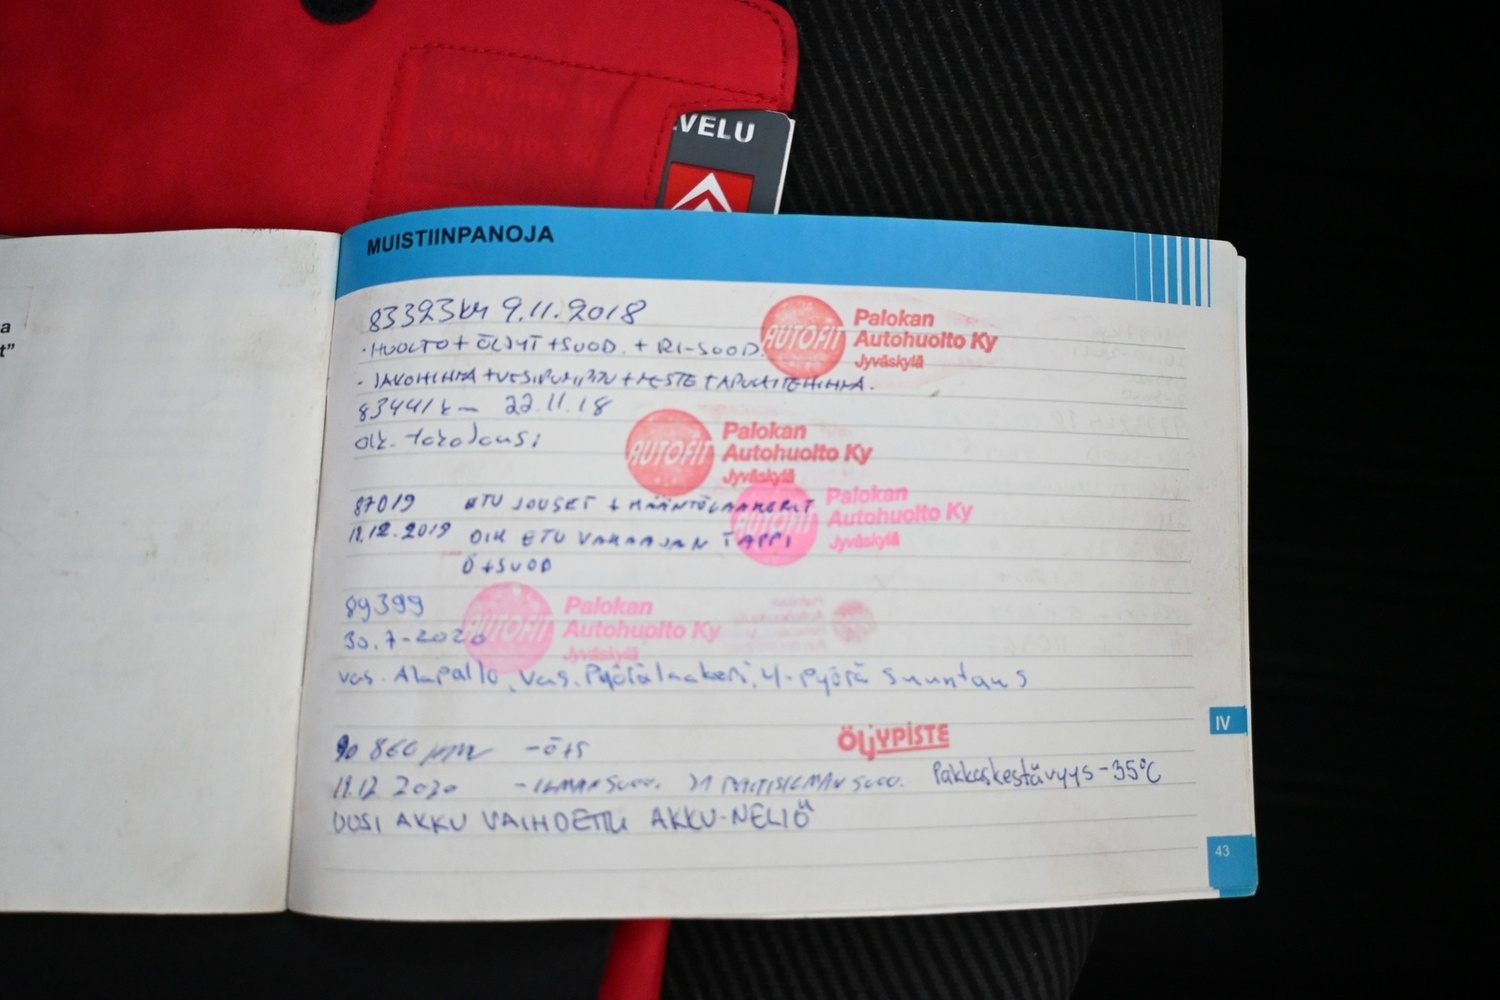 VELU
MUISTIINPANOJA
a
t"
83323km 9.11.2018
- HUOLTO + ÖLJYT + SUOD. + RI-SUOD.
AUTOFIT Palokan
Autohuolto Ky
Jyväskylä
- JAKOHIHNA + VESIPUMPPU + NESTE + APULAITEHIHNA.
83441km 22.11.18
AUTOFIT Palokan
Autohuolto Ky
Jyväskylä
87019 ETU JOUSET +
AUTOFIT Palokan
Autohuolto Ky
Jyväskylä
11.12.2019 OIK ETU VAKAAJAN TAPPI
Ö+SUOD
89399
30.7-2020
AUTOFIT Palokan
Autohuolto Ky
Jyväskylä
vas. Alapallo, Vas. Pyörälaakeri, 4-pyörä suuntaus
90 860 - Ö+S
ÖLJYPISTE
11.12.2020 - ILMANSUOD. RAITISILMANSUOD. Pakkaskestävyys -35°C
UUSI AKKU VAIHDETTU AKKU-NELIÖ
IV
43